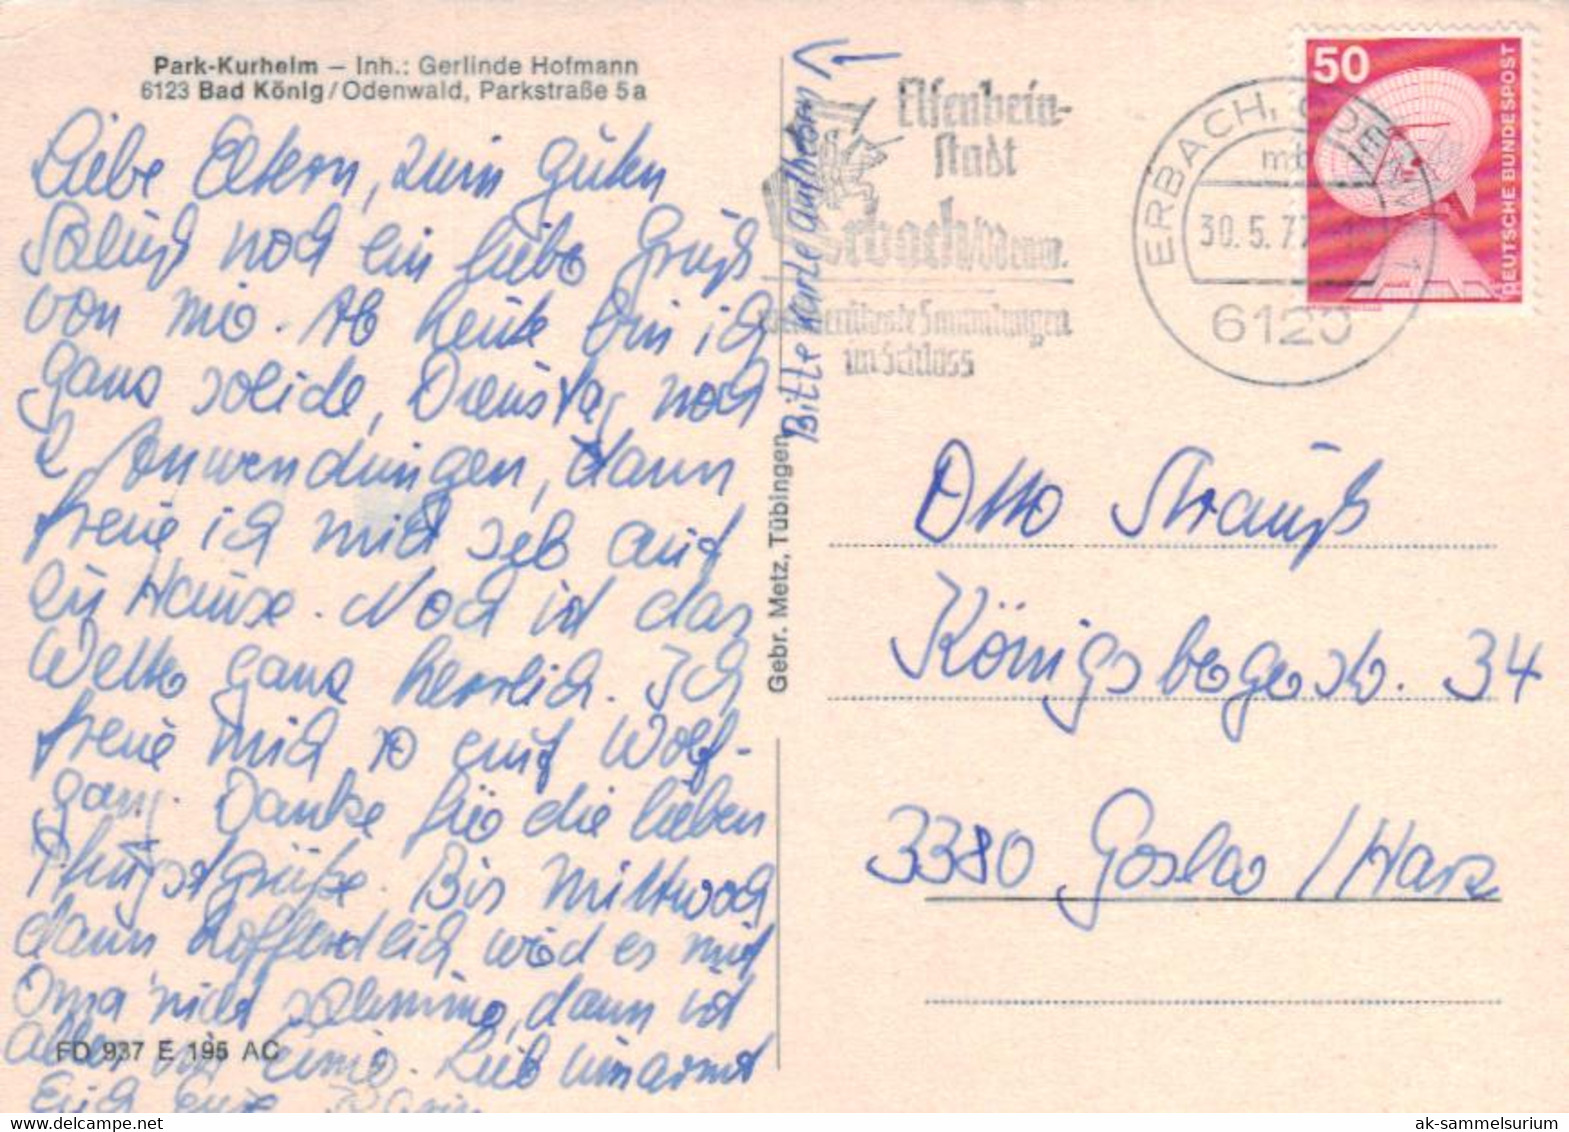 Park-Kurheim – Inh.: Gerlinde Hofmann
6123 Bad König/Odenwald, Parkstraße 5a
Liebe Eltern, zum guten
Schluß noch ein lieber Gruß
von mir. Ab heute bin ich
ganz solide, Dienstag noch
2 Anwendungen, dann
freue ich mich sehr auf
zu Hause. Noch ist das
Wetter ganz herrlich. Ich
freue mich so auf Wolf-
gang. Danke für die lieben
Pfingstgrüße. Bis Mittwoch
dann hoffentlich wird es mit
Oma nicht schlimmer, dann ist
alles
FD 937 E 195 AC
Lieb umarmt
Euch Eure
Gebr. Metz, Tübingen
Bitte Karte aufheben
Elfenbein-
stadt
Erbach/Odenw.
weltberühmte Sammlungen
im Schloss
ERBACH, ODENWALD 1
mb
30.5.77
6120
50
DEUTSCHE BUNDESPOST
Otto Strauß
Königsbergerstr. 34
3380 Goslar/Harz
ak-sammelsurium